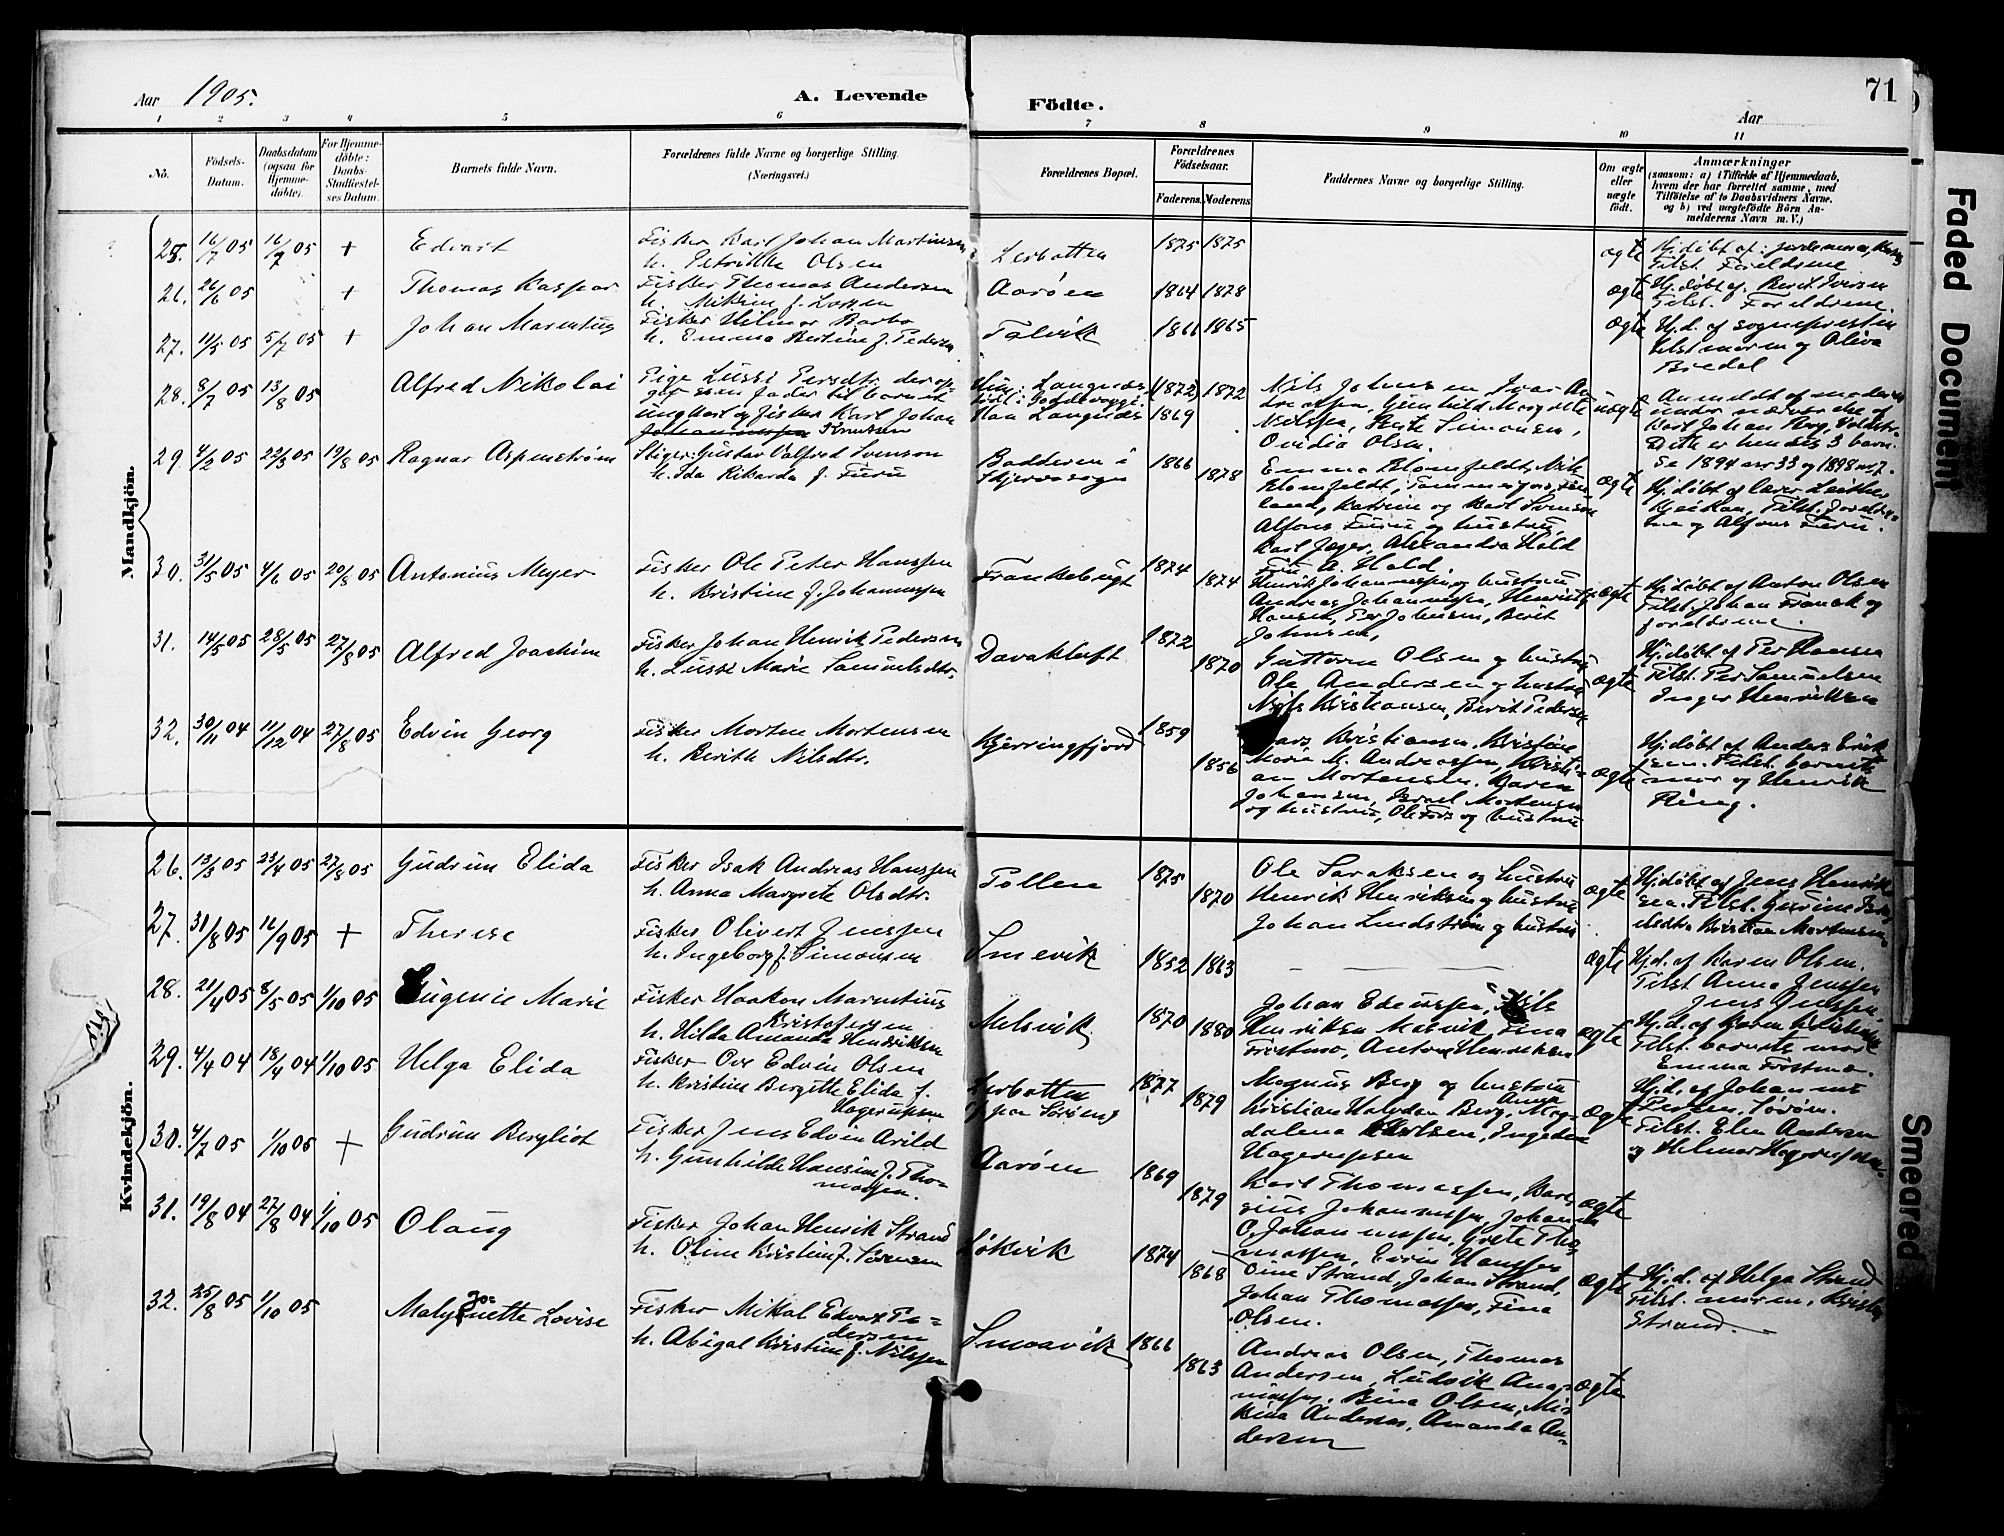 71
Aar 1905.
A. Levende
Födte.
Aar
1 2 3 4 5 6 7 8 9 10 11
No.
Födsels-Datum.
Daabsdatum (ogsaa for Hjemme-döbte).
For Hjemme-döbte: Daabs-Stadfæstel-ses Datum.
Barnets fulde Navn.
Forældrenes fulde Navne og borgerlige Stilling. (Næringsvei.)
Forældrenes Bopæl.
Forældrenes Födselsaar.
Faderens. Moderens
Faddernes Navne og borgerlige Stilling.
Om ægte eller uægte født.
Anmærkninger
(saasom: a) i Tilfælde af Hjemmedaab,
hvem der har forrettet samme, med
Tilföielse af to Daabsvidners Navne.
og b) ved uægtefödte Börn An-
melderens Navn m. V.)
Mandkjön.
25. 16/7 05 16/7 05 + Edvart
Fisker Karl Johan Martinsen
h. Petrikke Olsen
Lerbotten 1875 1875
ægte Hj.døbt af: jordemoren
Tilst. Foreldrene
26. 26/6 05 + Thomas Kaspar
Fisker Thomas Andersen
h. Mikkine f. Larsen
Aarøen 1864 1878
ægte Hj.døbt af Berit Iversen
Tilst. Foreldrene.
27. 11/5 05 5/7 05 + Johan Marentius
Fisker Hilmar Barbo
h. Emma Bertine f. Pedersen
Talvik 1866 1865
ægte Hj.d. af sognepresten
tilst moren og Oliva
Bredal
28. 8/7 05 13/8 05 Alfred Nikolai
Pige Lussi Persdtr. der op-
gir som fader til barnet
ungkarl og fisker Karl Johan
Johannessen Knutsen
Hun: Langnes
Han Langnes
(1872) 1872
1869
Nils Johnsen, Ivar An-
dreassen, Gunhild Margrethe
Nilssen, Berte Simonsen,
Ovidia Olsen.
uægte
Anmeldt af moderen
under nærværelse af
Karl Johan
Dette er hendes 3 barn.
Se 1894 nr 33 og 1898 nr 7.
29. 4/2 05 22/3 05 19/8 05 Ragnar Aspenstrøm
Stiger: Gustav Valfred Svenson
h. Ida Rikarda f. Furu
Badderen i
Skjervø sogn
1866 1878
Emma Blomfeldt, Nils
Blomfeldt, Tommas
Katrine og Karl Svenson
Alfons Furu og hustru,
Karl Jæger, Alexandra Hald
Fru A. Hald.
ægte
Hj.døbt af lærer Leither
Tilst. foreldre-
ne og Alfons Furu.
30. 31/5 05 4/6 05 20/8 05 Antonius Meyer
Fisker Ole Peter Hanssen
h. Kristine f. Johannessen
Frankebugt 1874 1874
Henrik Johannessen og hustru
Andreas Johannessen, Henriette
Hansen, Per Johnsen, Berit
Johnsen,
ægte
Hj.døbt af Anton Olsen
Tilst. Johan Franck og
foreldrene.
31. 14/5 05 28/5 05 27/8 05 Alfred Joachim
Fisker Johan Henrik Pedersen
h. Lussi Marie Samuelsdtr.
Davakluft 1872 1870
Guttorm Olsen og hustru
Ole Andersen og hustru
Nils Kristiansen, Berit Pedersen
ægte
Hj.døbt af Per Hansen
Tilst. Per Samuelsen
Inger Henriksen
32. 30/11 04 11/12 04 27/8 05 Edvin Georg
Fisker Morten Mortensen
h. Berith Nilsdtr.
Kjerringfjord 1859 1856
Lars Kristiansen, Kristine
Marie M. Andreassen, Kristi-
an Mortensen, Karen
Johansen, Israel Mortensen
og hustru, Ole Fors og hustru
ægte
Hj.døbt af Anders Erik-
sen. Tilst. barnets
mor og Henrik
Ring.
Kvindekjön.
26. 13/3 05 23/4 05 27/8 05 Gudrun Elida
Fisker Isak Andreas Hanssen
h. Anna Margrete Olsdtr.
Pollen 1875 1870
Ole Saraksen og hustru
Henrik Henriksen og hustru
Johan Lindstrøm og hustru
ægte
Hj.døbt af Jens Henrik-
sen. Tilst. Gurine
Kristian Mortensen
27. 31/8 05 16/9 05 + Therese
Fisker Olivert Jenssen
h. Ingeborg f. Simonsen
Smevik 1852 1863
ægte
Hj.d. af Karen Olsen.
Tilst Anna Jenssen
Jens Jenssen.
28. 21/4 05 8/5 05 1/10 05 Eugenie Marie
Fisker Haakon Marentius
Kristofersen
h. Hilda Amanda Henriksen
Melsvik 1870 1880
Johan Edvardssen, Nils
Henriksen Melsvik, Fina
Frostmo, Anton Henriksen
ægte
Hj.d. af Karen
Tilst. barnets mor
Emma Frostmo.
29. 4/4 04 18/4 04 1/10 05 Helga Elida
Fisker Ove Edvin Olsen
h. Kristine Bergitte Elida f.
Hagerupsen
Lerbotten
(paa Sørøen)
1877 1879
Magnus Berg og hustru
Anna
Kristian Halvdan Berg, Mag-
dalena Karlsen, Ingeborg
Hagerupsen
ægte
Hj.d. af Johan
Persen, Sørøen.
Tilst. Elen Andersen
og Helmer Hagerupsen.
30. 4/7 05 1/10 05 + Gudrun Bergliot
Fisker Jens Edvin Arild
h. Gunhilde Hansine f. Tho-
massen.
Aarøen 1869 1879
Karl Thomassen, Bare-
sius Johannessen, Johanna
O. Johannessen, Grete Tho-
massen, Eivin Hanssen
ægte
31. 19/8 04 27/8 04 1/10 05 Olaug
Fisker Johan Henrik Strand
h. Oline Kristine f. Sørensen
Løkvik 1874 1868
Oine Strand, Johan Strand,
Johan Thomassen, Fina
Olsen.
ægte
Hj.d. af Helga Strand
Tilst. moren, Kristen
Strand.
32. 25/8 05 1/10 05 Maly Jo-nette Lovise
Fisker Mikal Edvart Pe-
dersen
h. Abigal Kristine f. Nilssen
Smaavik 1866 1863
Andreas Olsen, Thomas
Andersen, Ludvik Ana-
niassen, Bina Olsen, Mik-
kina Andersen, Amanda An-
dersen
ægte
Faded Document
Smeared